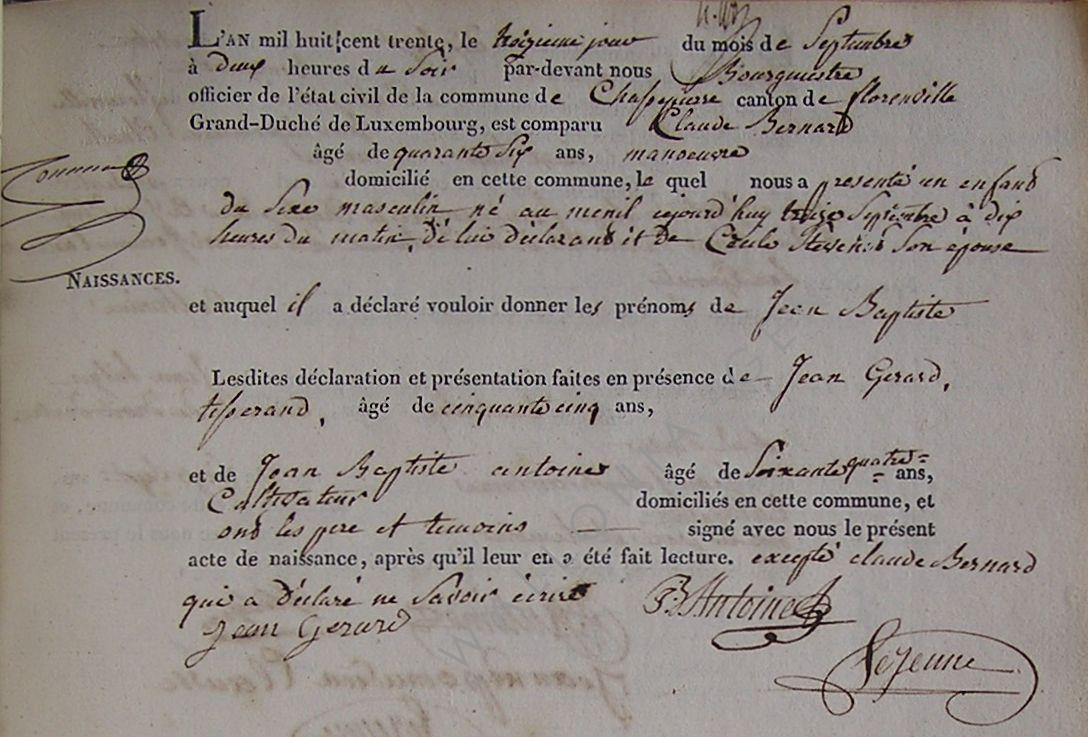 L'AN mil huit cent trente, le treizieme jour du mois de Septembre
à deux heures du Soir par-devant nous Bourguestre
officier de l'état civil de la commune de Chassepierre canton de florenville
Grand-Duché de Luxembourg, est comparu Claude Bernard
âgé de quarante Six ans, manoeuvre
domicilié en cette commune, le quel nous a presenté un enfand
du Sexe masculin né au menil cejourd'huy treize Septembre à dix
heures du matin, de lui déclarant et de Cecile Son épouse
NAISSANCES.
et auquel il a déclaré vouloir donner les prénoms de Jean Baptiste
Lesdites déclaration et présentation faites en présence de Jean Gerard,
tisserand, âgé de cinquante cinq ans,
et de Jean Baptiste antoine âgé de Soixante quatre ans,
Cultivateur domiciliés en cette commune, et
ont les pere et temoins signé avec nous le présent
acte de naissance, après qu'il leur en a été fait lecture. excepté claude Bernard
qui a déclaré ne Savoir écrire PJ Antoine
Jean Gerard
LeJeune